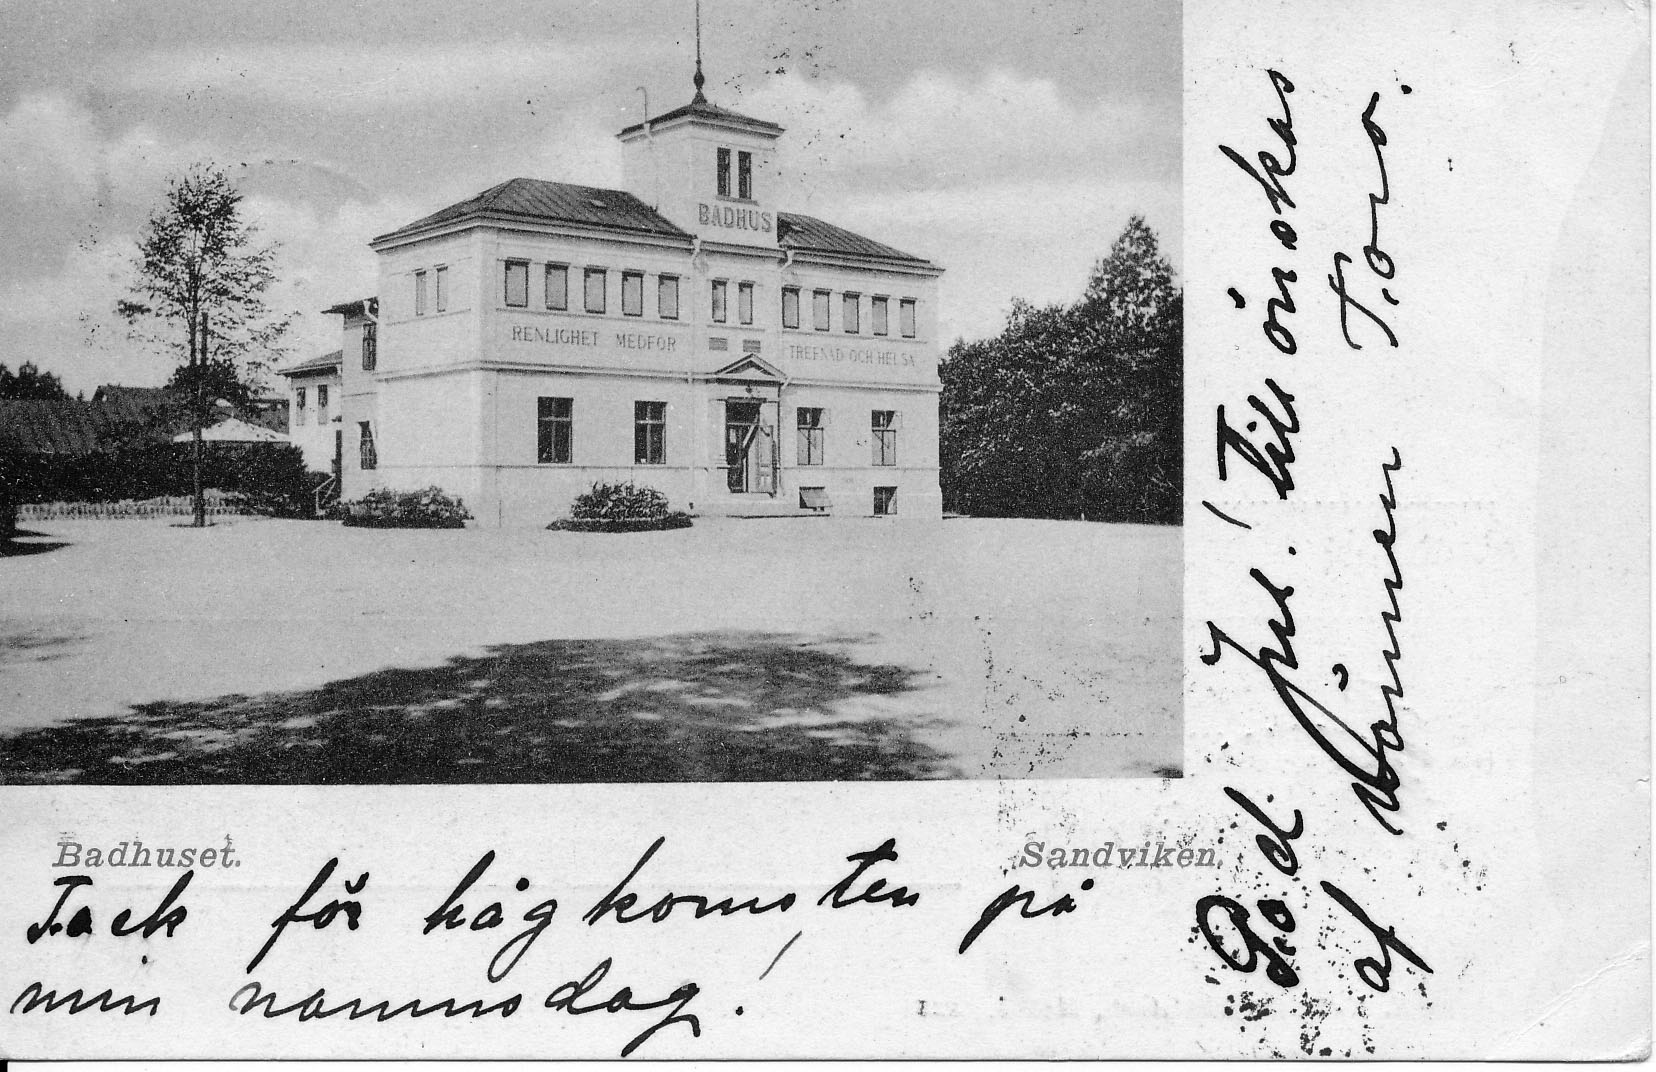 BADHUS
RENLIGHET MEDFÖR
TREFNAD OCH HELSA
Badhuset.
Sandviken.
Tack för hågkomsten på
min namnsdag!
God Jul! tillönskas
af vännen Tora.